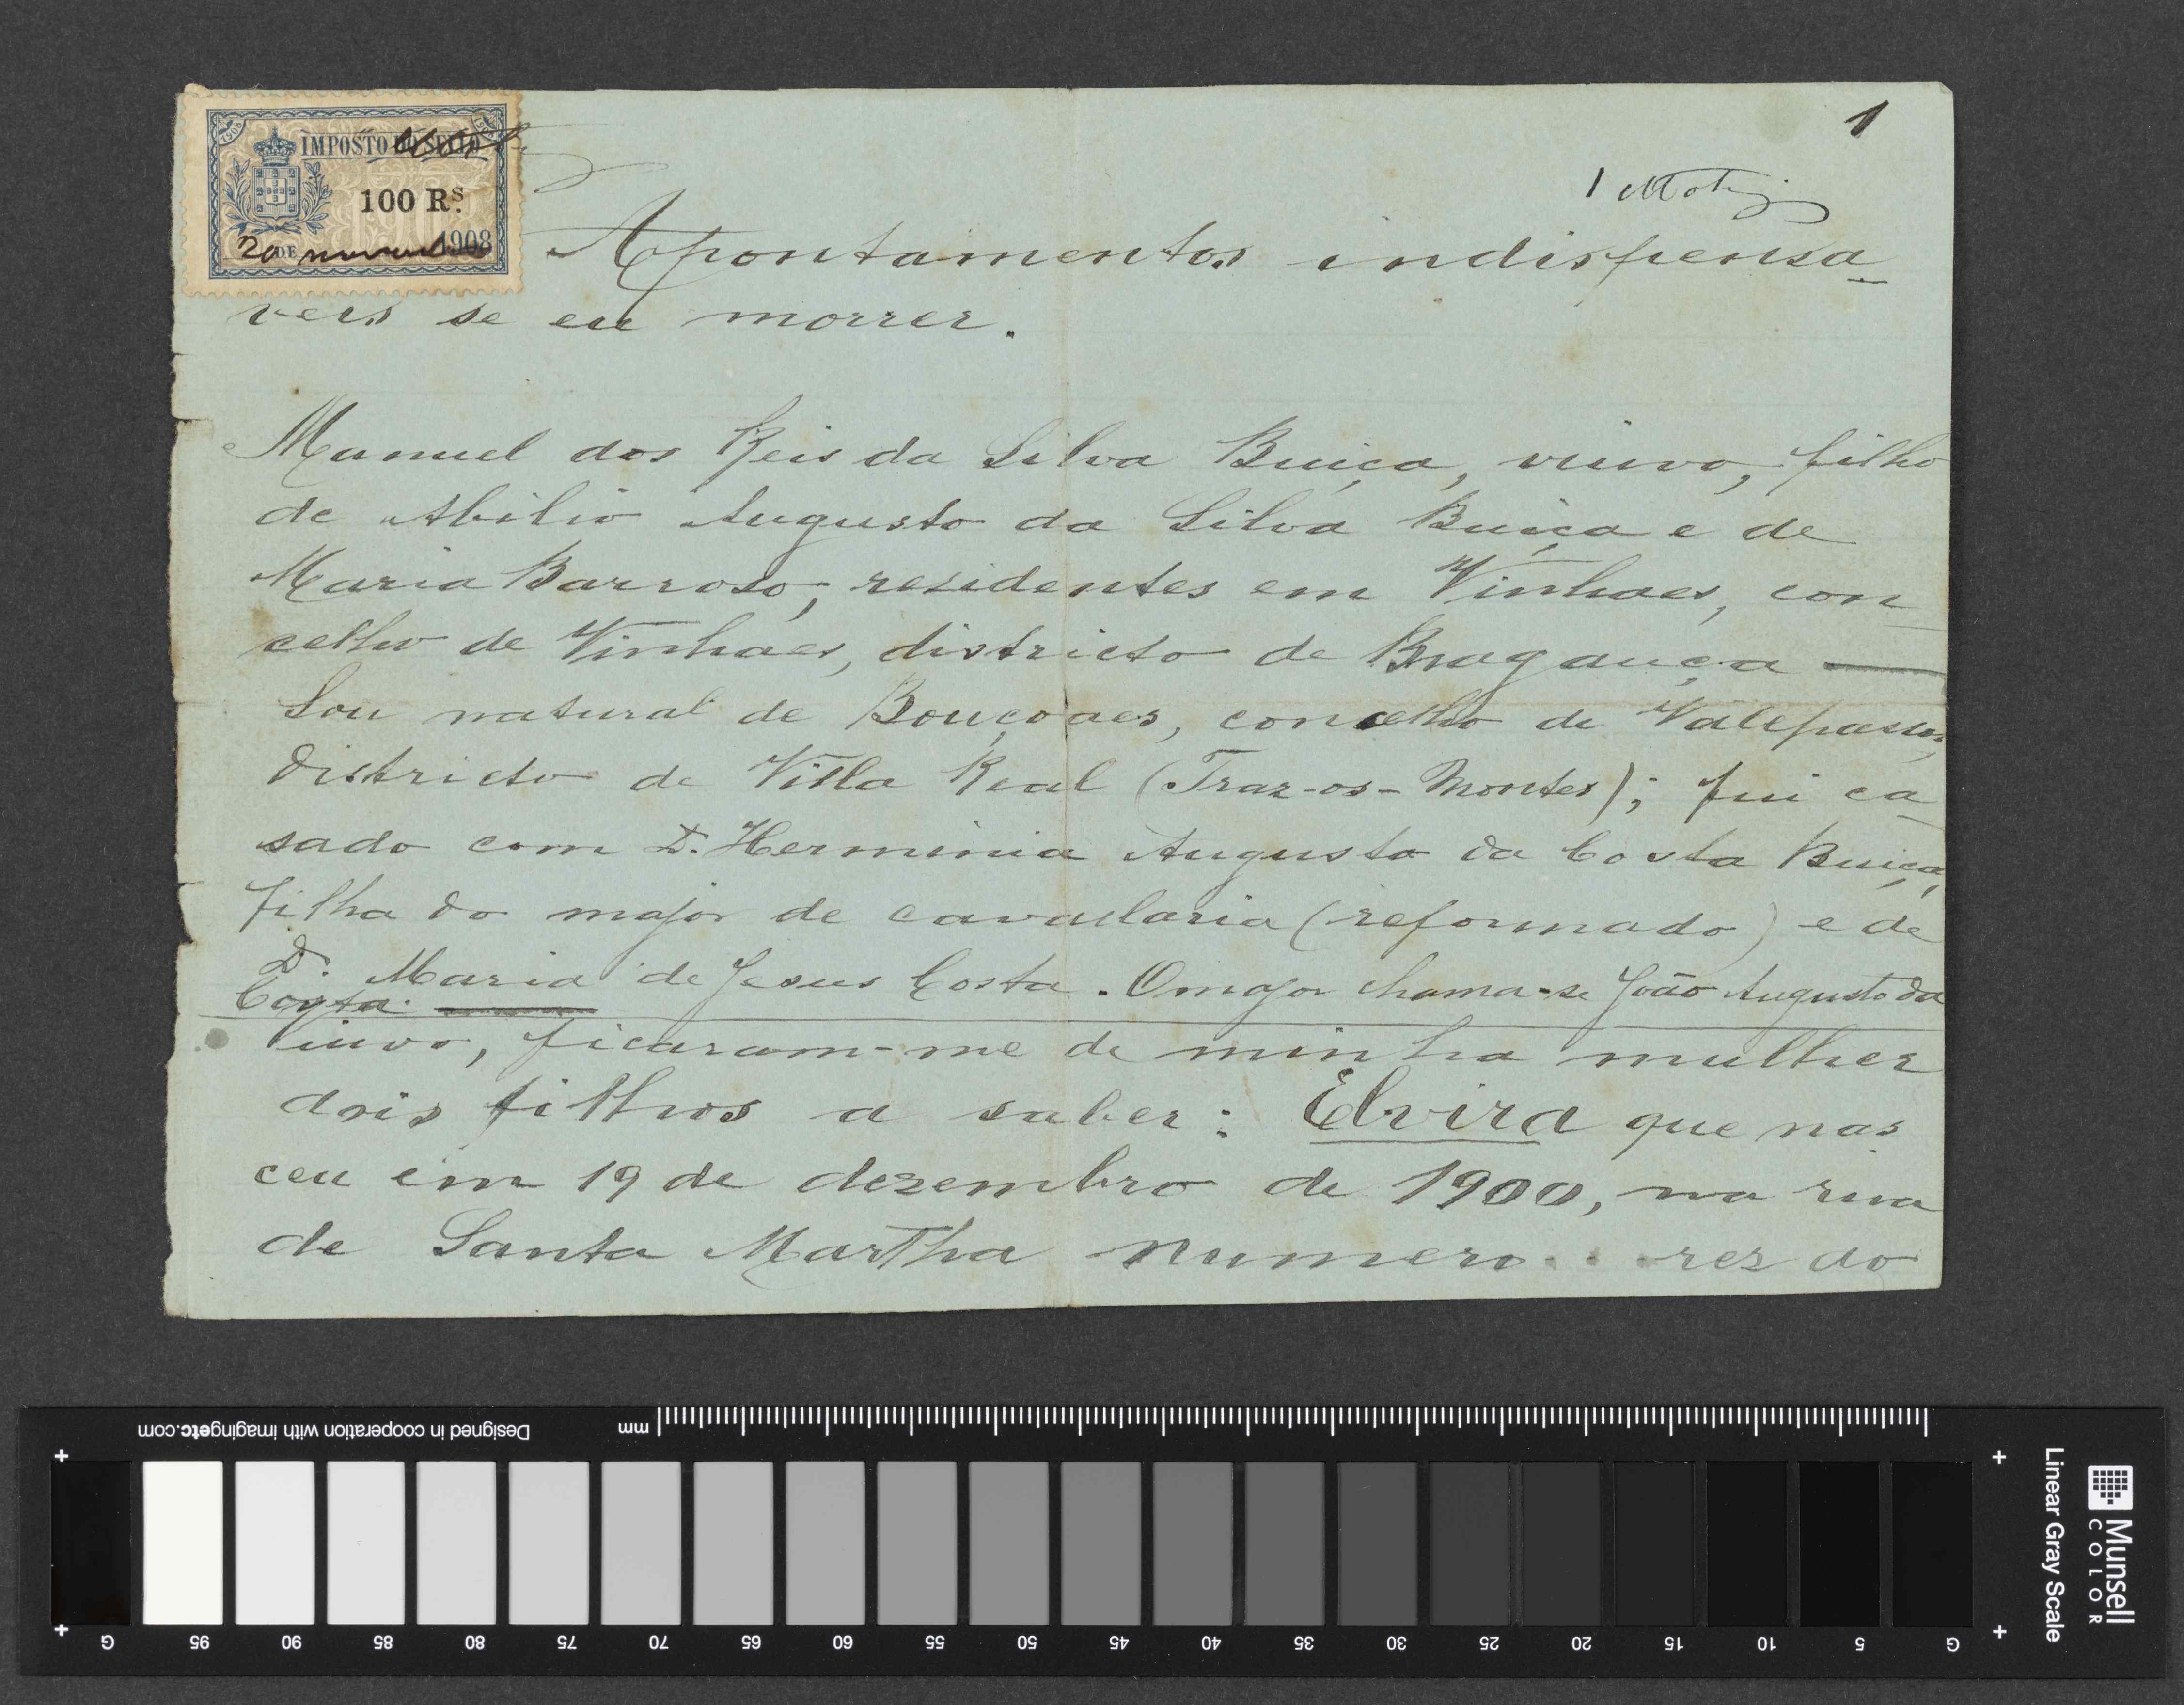 1
IMPOSTO DO SELLO
100 Rs.
20 DE 1908
1
Apontamentos indispensa-
veis se eu morrer.
Manuel dos Reis da Silva Buiça, viuvo, filho
de Abilio Augusto da Silva Buiça e de
Maria Barroso, residentes em Vinhaes, con-
celho de Vinhaes, districto de Bragança —
Sou natural de Bouçoaes, concelho de Valepassos,
districto de Villa Real (Traz-os-Montes); fui ca-
sado com D. Herminia Augusta da Costa Buiça,
filha do major de cavallaria (reformado) e de
D. Maria de Jesus Costa. O major chama-se João Augusto da
Costa. —
Viuvo, ficaram-me de minha mulher
dois filhos a saber: Elvira que nas
ceu em 19 de dezembro de 1900, na rua
de Santa Martha numero... rez do
Designed in cooperation with imagingetc.com
mm
G 95 90 85 80 75 70 65 60 55 50 45 40 35 30 25 20 15 10 5 G
Linear Gray Scale
Munsell
COLOR